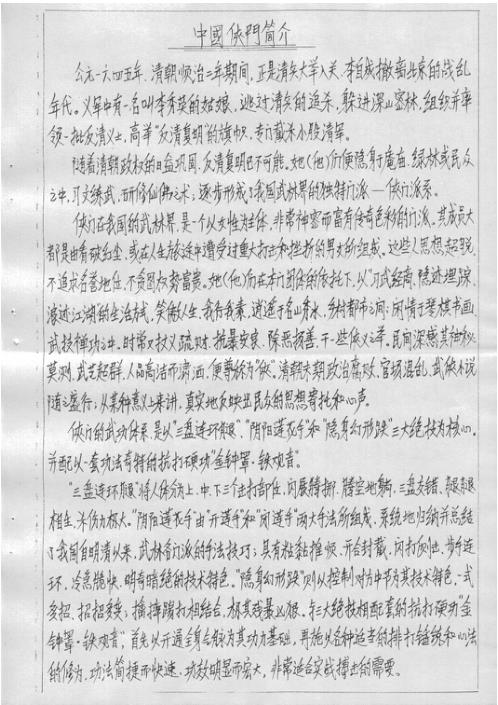 中國侠門简介
公元一六四五年，清朝顺治二年期间，正是清兵大举入关、李自成撤离北京的战乱
年代。义军中有一名叫李秀英的姑娘，逃过清兵的追杀，躲进深山密林，组织并率
领一批反清义士，高举“反清复明”的旗帜，专门截杀小股清军。
随着清朝政权的日益巩固，反清复明已不可能。她(他)们便隐身于庙庵、绿林或民众
之中，习文练武，研修仙佛之术；逐步形成了我国武林界的独特门派——侠门派系。
侠门在我国的武林界，是一个以女性为主体，非常神密而富有传奇色彩的门派。其成员大
都是由看破红尘，或在人生旅途中遭受过重大打击和挫折的男女所组成。这些人思想超脱，
不追求名誉地位、不贪图权势富贵。她(他)们在本门团体的依托下，以“习武经商，隐迹埋踪，
浪迹江湖”的生活方式，笑傲人生，我行我素，逍遥于名山秀水、乡村都市之间；闲情于琴棋书画、
武技禅功之中，时常又仗义疏财、抗暴安良、除恶扬善，干一些侠义之举。民间深感其神秘
莫测，武艺超群，人品高洁而潇洒，便尊称为“侠”。清朝末期政治腐败，官场混乱，武侠小说
随之盛行；从某种意义上来讲，真实地反映出民众的思想寄托和心声。
侠门的武功体系，是以“三盘连环腿”、“阴阳莲花手”和“隐身幻形跌”三大绝技为核心。
并配以一套功法奇特的抗打硬功“金钟罩·铁观音”。
“三盘连环腿”将人体分为上、中、下三个击打部位，闪展腾挪，腾空地躺，三盘交错，腿腿
相生，杀伤力极大。“阴阳莲花手”由“开莲手”和“闭莲手”两大手法所组成，系统地归纳并总结
了我国自明清以来，武林各门派的手法技巧；具有粘黏推烦、开合封藏、闪打倒出、步手连
环、冷急脆快、明奇暗绝的技术特色。“隐身幻形跌”则以控制对方中节为其技术特色，一式
多招，招招多变，撞摔踢打相结合，极其残暴凶狠。与三大绝技相配套的抗打硬功“金
钟罩·铁观音”，首先以开通全身经脉为其功力基础，再施以各种适当的排打锻练和心法
的修为，功法简捷而快速，功效明显而宏大，非常适合实战搏击的需要。